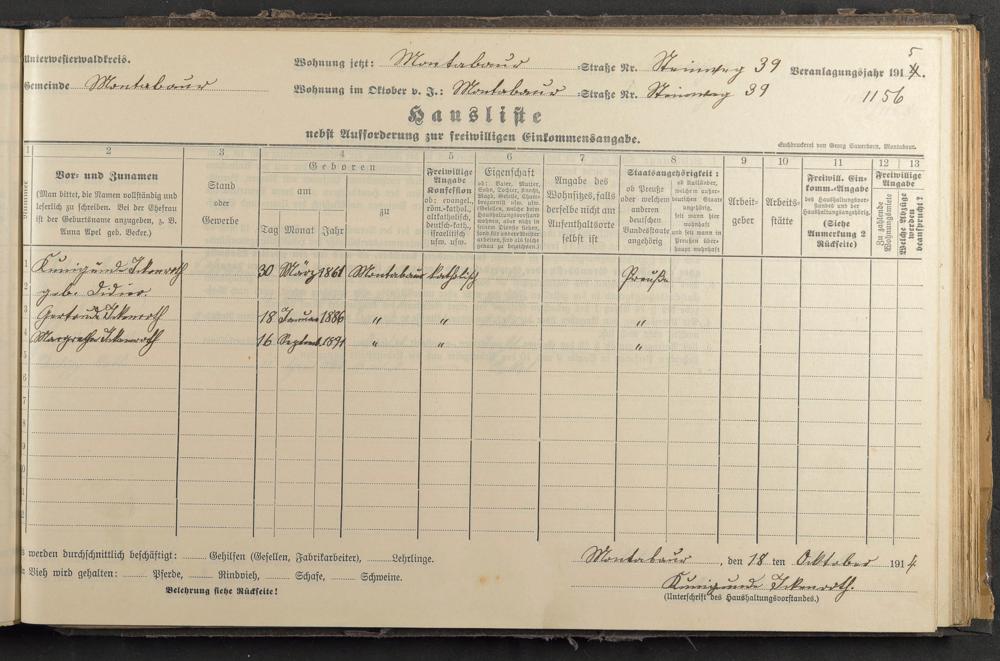 Unterwesterwaldkreis.
Wohnung jetzt: Montabaur =Straße Nr. Steinweg 39
Veranlagungsjahr 1914. 5
Gemeinde Montabaur
Wohnung im Oktober v. J.: Montabaur =Straße Nr. Steinweg 39
1156
Hausliste
nebst Aufforderung zur freiwilligen Einkommensangabe.
Buchdruckerei von Georg Sauerborn, Montabaur.
1 2 3 4 5 6 7 8 9 10 11 12 13
Nummer
Vor- und Zunamen
(Man bittet, die Namen vollständig und
leserlich zu schreiben. Bei der Ehefrau
ist der Geburtsname anzugeben, z. B.
Anna Apel geb. Becker.)
Stand
oder
Gewerbe
Geboren
am
Tag Monat Jahr
zu
Freiwillige
Angabe
Konfession
ob: evangel.,
röm.-kathol.,
altkatholisch,
deutsch-kath.,
israelitisch
usw. usw.
Eigenschaft
ob: Vater, Mutter,
Sohn, Tochter, Knecht,
Magd, Geselle,
Angabe des
Wohnsitzes, falls
derselbe nicht am
Aufenthaltsorte
selbst ist
Staatsangehörigkeit:
ob Preuße
oder welchem
anderen
deutschen
Bundesstaate
angehörig
ob Ausländer,
welchem außer-
deutschen Staate
angehörig,
seit wann hier
wohnhaft
und seit wann in
Preußen über-
haupt wohnhaft
Arbeit-
geber
Arbeits-
stätte
Freiwill. Ein-
komm.-Angabe
des Haushaltungsvor-
standes und der
Haushaltungsangehörig.
(Siehe
Anmerkung 2
Rückseite)
Freiwillige
Angabe
Zu zahlende
Wohnungsmiete
Welche Abzüge
werden
beansprucht?
1 Kunigunde Ickenroth 30 März 1861 Montabaur katholisch Preuße
2 geb. Didier.
3 Gertrude Ickenroth 18 Januar 1886 " " "
4 Margrethe Ickenroth 16 Septemb. 1891 " " "
5
6
7
8
9
0
1
2
werden durchschnittlich beschäftigt: Gehilfen (Gesellen, Fabrikarbeiter), Lehrlinge.
Vieh wird gehalten: Pferde, Rindvieh, Schafe, Schweine.
Belehrung siehe Rückseite!
Montabaur, den 18 ten Oktober 1914
Kunigunde Ickenroth.
(Unterschrift des Haushaltungsvorstandes.)